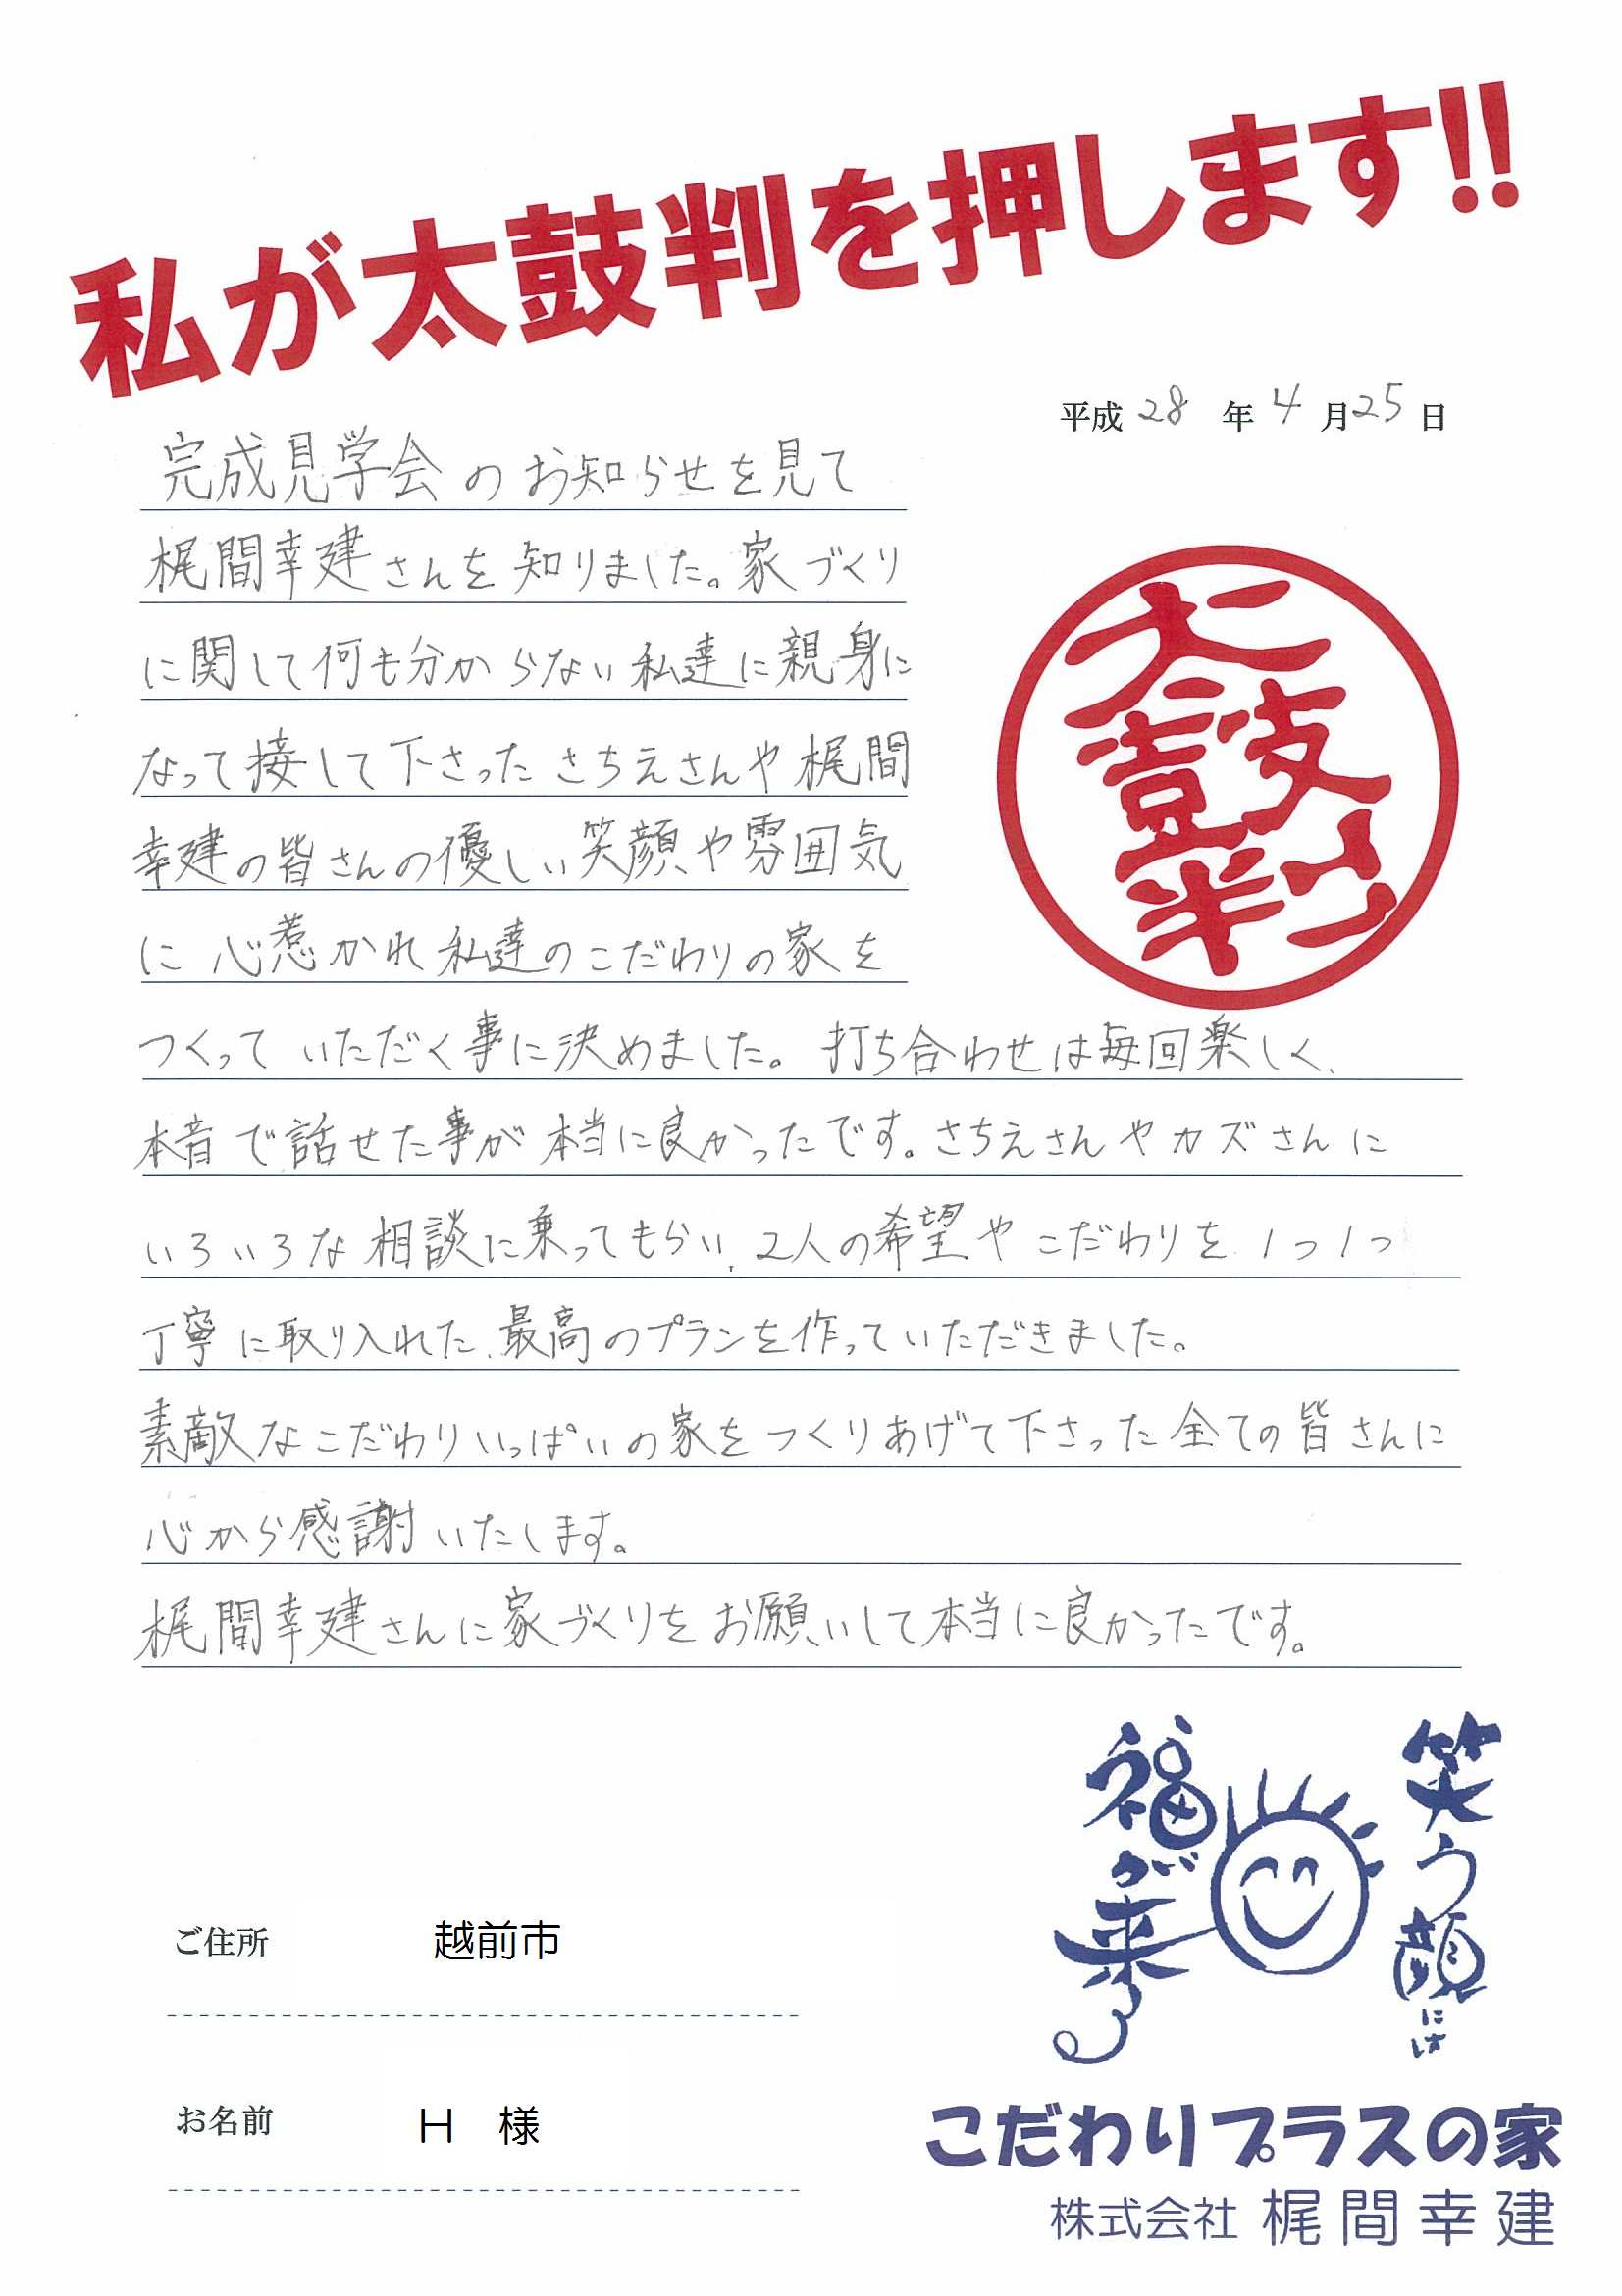 私が太鼓判を押します!!
平成28年4月25日
完成見学会のお知らせを見て
梶間幸建さんを知りました。家づくり
に関して何も分からない私達に親身に
なって接して下さったさちえさんや梶間
幸建の皆さんの優しい笑顔や雰囲気
に心惹かれ私達のこだわりの家を
つくっていただく事に決めました。打ち合わせは毎回楽しく、
本音で話せた事が本当に良かったです。さちえさんやカズさんに
いろいろな相談に乗ってもらい、2人の希望やこだわりを1つ1つ
丁寧に取り入れた、最高のプランを作っていただきました。
素敵なこだわりいっぱいの家をつくりあげて下さった全ての皆さんに
心から感謝いたします。
梶間幸建さんに家づくりをお願いして本当に良かったです。
太鼓判
笑う顔には
福が来る
ご住所 越前市
お名前 H 様
こだわりプラスの家
株式会社 梶間幸建